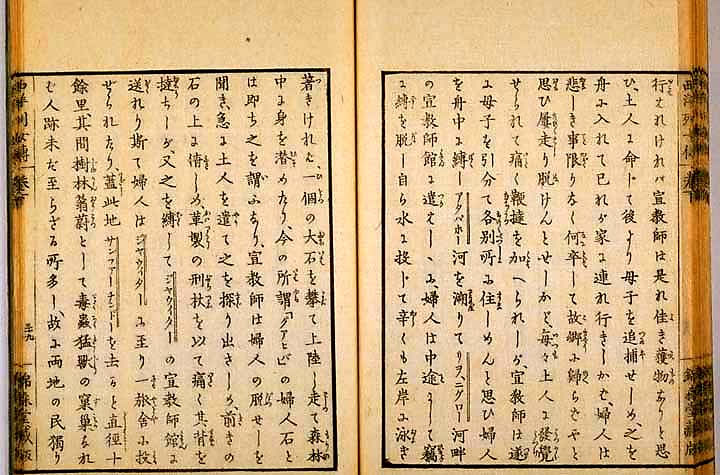 行はれければ宣教師は是れ佳き獲物なりと思
ひ、土人に命じて後より母子を追捕せしめ之を
舟に入れて己れが家に連れ行きしかば婦人は
悲しき事限りなく何卒して故郷に帰らむやと
思ひ屡走り脱けんとせしかど毎々土人に發覺
せられて痛く鞭撻を加へられしが、宣教師は遂
に母子を引分て各別所に住しめんと思ひ婦人
を舟中に縛しアタバポー河を溯りてリヲニグロー河畔
の宣教師館に遣はしゝに、婦人は中途にして竊
に縛を脱し自ら水に投じて辛くも左岸に泳き
著きければ、一個の大石を攀て上陸し走て森林
中に身を潜めたり、今の所謂「グアヒビ」の婦人石と
は即ち之を謂ふなり、宣教師は婦人の脱せしを
聞き、急に土人を遣て之を探り出さしめ前きの
石の上に倚しめ革製の刑杖を以て痛く其背を
撻ちしが、又之を縛してジャヴィターの宣教師館に
送れり斯て婦人はジャヴィターに至り一旅舍に投
ぜられたり蓋此地サンファーナンドーを去ると直徑十
餘里其間樹林蓊蔚として毒蟲猛獸の窠巣なれ
ば人跡未だ至らざる所多し、故に両地の民獨り
西洋列女傳
卷下
三九
錦森堂藏版